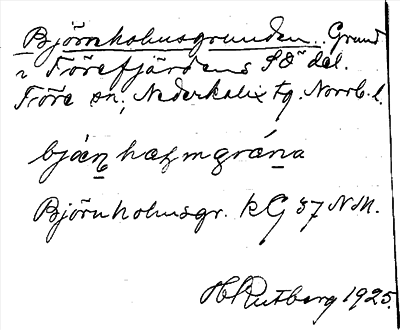 Björnholmsgrunden. Grund
i Förefjärdens SÖ del.
Före sn; Nederkalix tg. Norrb. l.
bján hafmgrána
Björnholmsgr. kG 87 NM.
H Rutberg 1925.